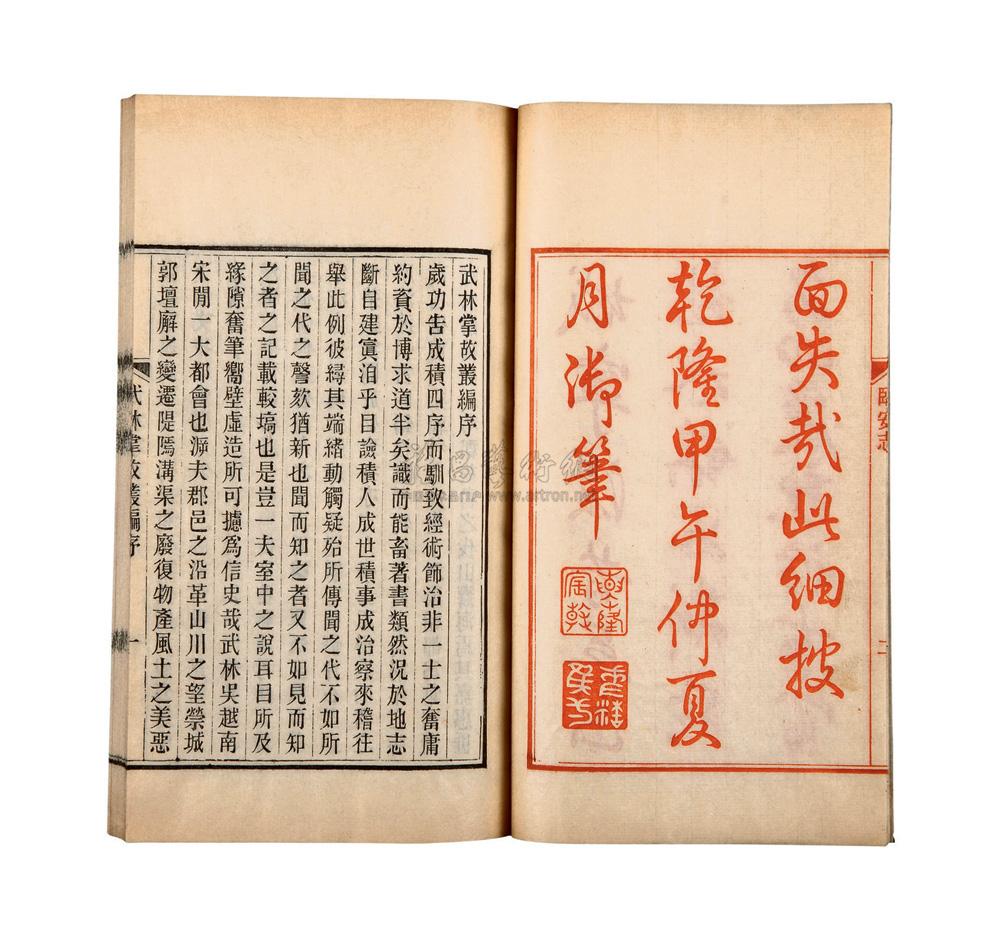 面失哉此細披
乾隆甲午仲夏
月御筆
乾隆
宸翰
臨安志
二
武林掌故叢編序
歲功告成積四序而馴致經術飾治非一士之奮庸
約資於博求道半矣識而能畜著書類然況於地志
斷自建寅洎乎目論積人成世積事成治察來稽往
舉此例彼繹其端緒動觸疑殆所傳聞之代不如所
聞之代之謦欬猶新也聞而知之者又不如見而知
之者之記載較塙也是豈一夫室中之說耳目所及
緣隙奮筆嚮壁虛造所可攄為信史哉武林吳越南
宋閒一大都會也溯夫郡邑之沿革山川之望禜城
郭壇廨之變遷隄隖溝渠之廢復物產風土之美惡
武林掌故叢編序
一
www.artron.net